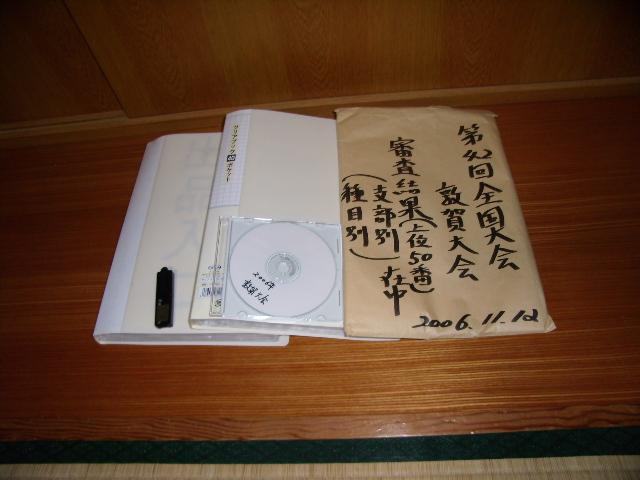 第42回全国大会
敦賀大会
審査結果(上夜50番)
(支部別
種目別)
在中
2006.11.12
クリアブック 40 ポケット
2006年
敦賀大会